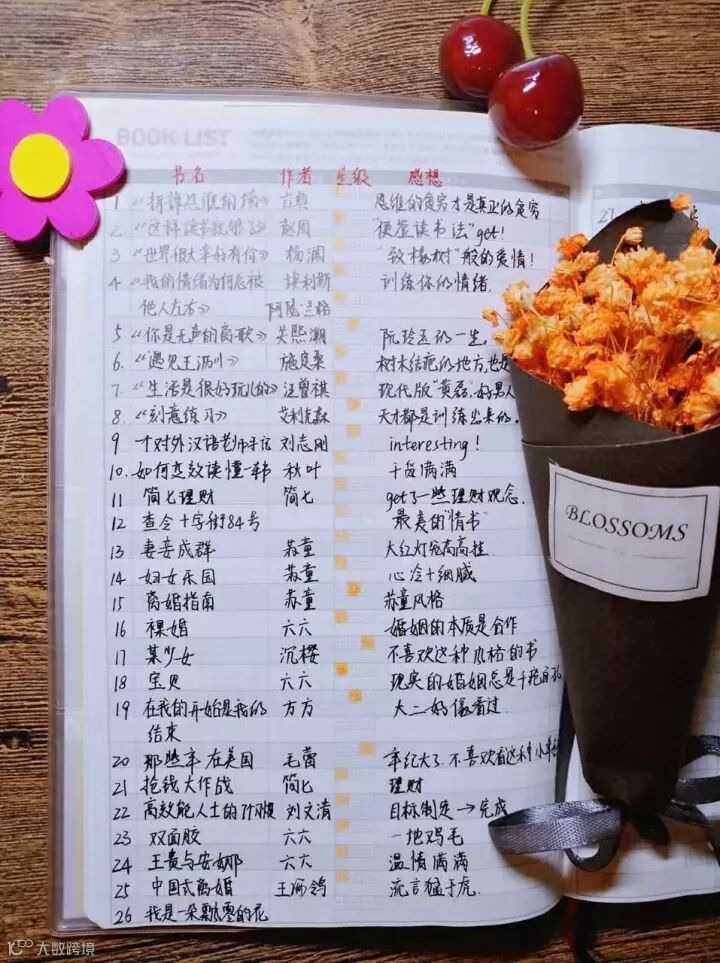 BOOK LIST
书名 作者 星级 感想
1 《拆掉思维的墙》 古典 思维的贫穷才是真正的贫穷
2 《这样读书就够了》 赵周 "便签读书法"get!
3 《世界很大幸好有你》 杨澜 "致橡树"般的爱情!
4 《我的情绪为何总被 埃利斯 训练你的情绪.
他人左右》 阿隆·兰格
5 《你是无声的离歌》 关熙潮 阮玲玉的一生.
6. 《遇见王沥川》 施定柔 树木结疤的地方,也是
7. 《生活是很好玩儿的》 汪曾祺 现代版"黄磊",好男人
8. 《刻意练习》 艾利克森 天才都是训练出来的.
9 一个对外汉语老师手记 刘志刚 interesting!
10. 如何高效读懂一本书 秋叶 干货满满
11 简七理财 简七 get了一些理财观念.
12 查令十字街84号 最美的"情书"
13 妻妾成群 苏童 大红灯笼高高挂.
14 妇女乐园 苏童 心冷+细腻
15 离婚指南 苏童 苏童风格
16 裸婚 六六 婚姻的本质是合作
17 某少女 沉樱 不喜欢这种风格的书
18 宝贝 六六 现实的婚姻总是千疮百孔
19 在我的开始是我的 方方 大二好像看过.
结束
20 那些年在美国 毛蕾 年纪大了.不喜欢看这种小
21 抢钱大作战 简七 理财
22 高效能人士的7个习惯 刘文清 目标制定→完成
23 双面胶 六六 一地鸡毛
24 王贵与安娜 六六 温情满满
25 中国式离婚 王海鸰 流言猛于虎.
26 我是一朵飘零的花
27
BLOSSOMS
大数跨境